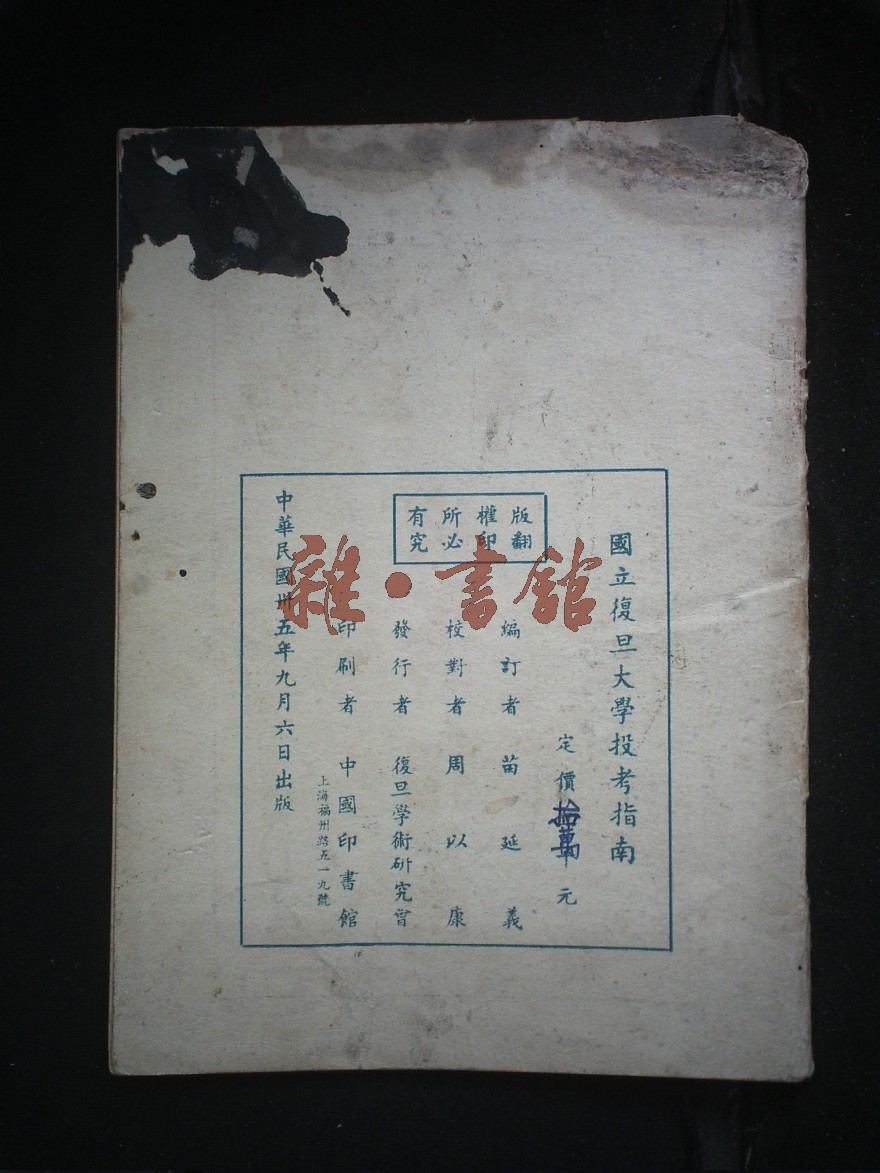 國立復旦大學投考指南
定價拾萬元
版權所有
翻印必究
編訂者 苗延義
校對者 周以康
發行者 復旦學術研究會
印刷者 中國印書館
上海福州路五一九號
中華民國卅五年九月六日出版
雜·書館